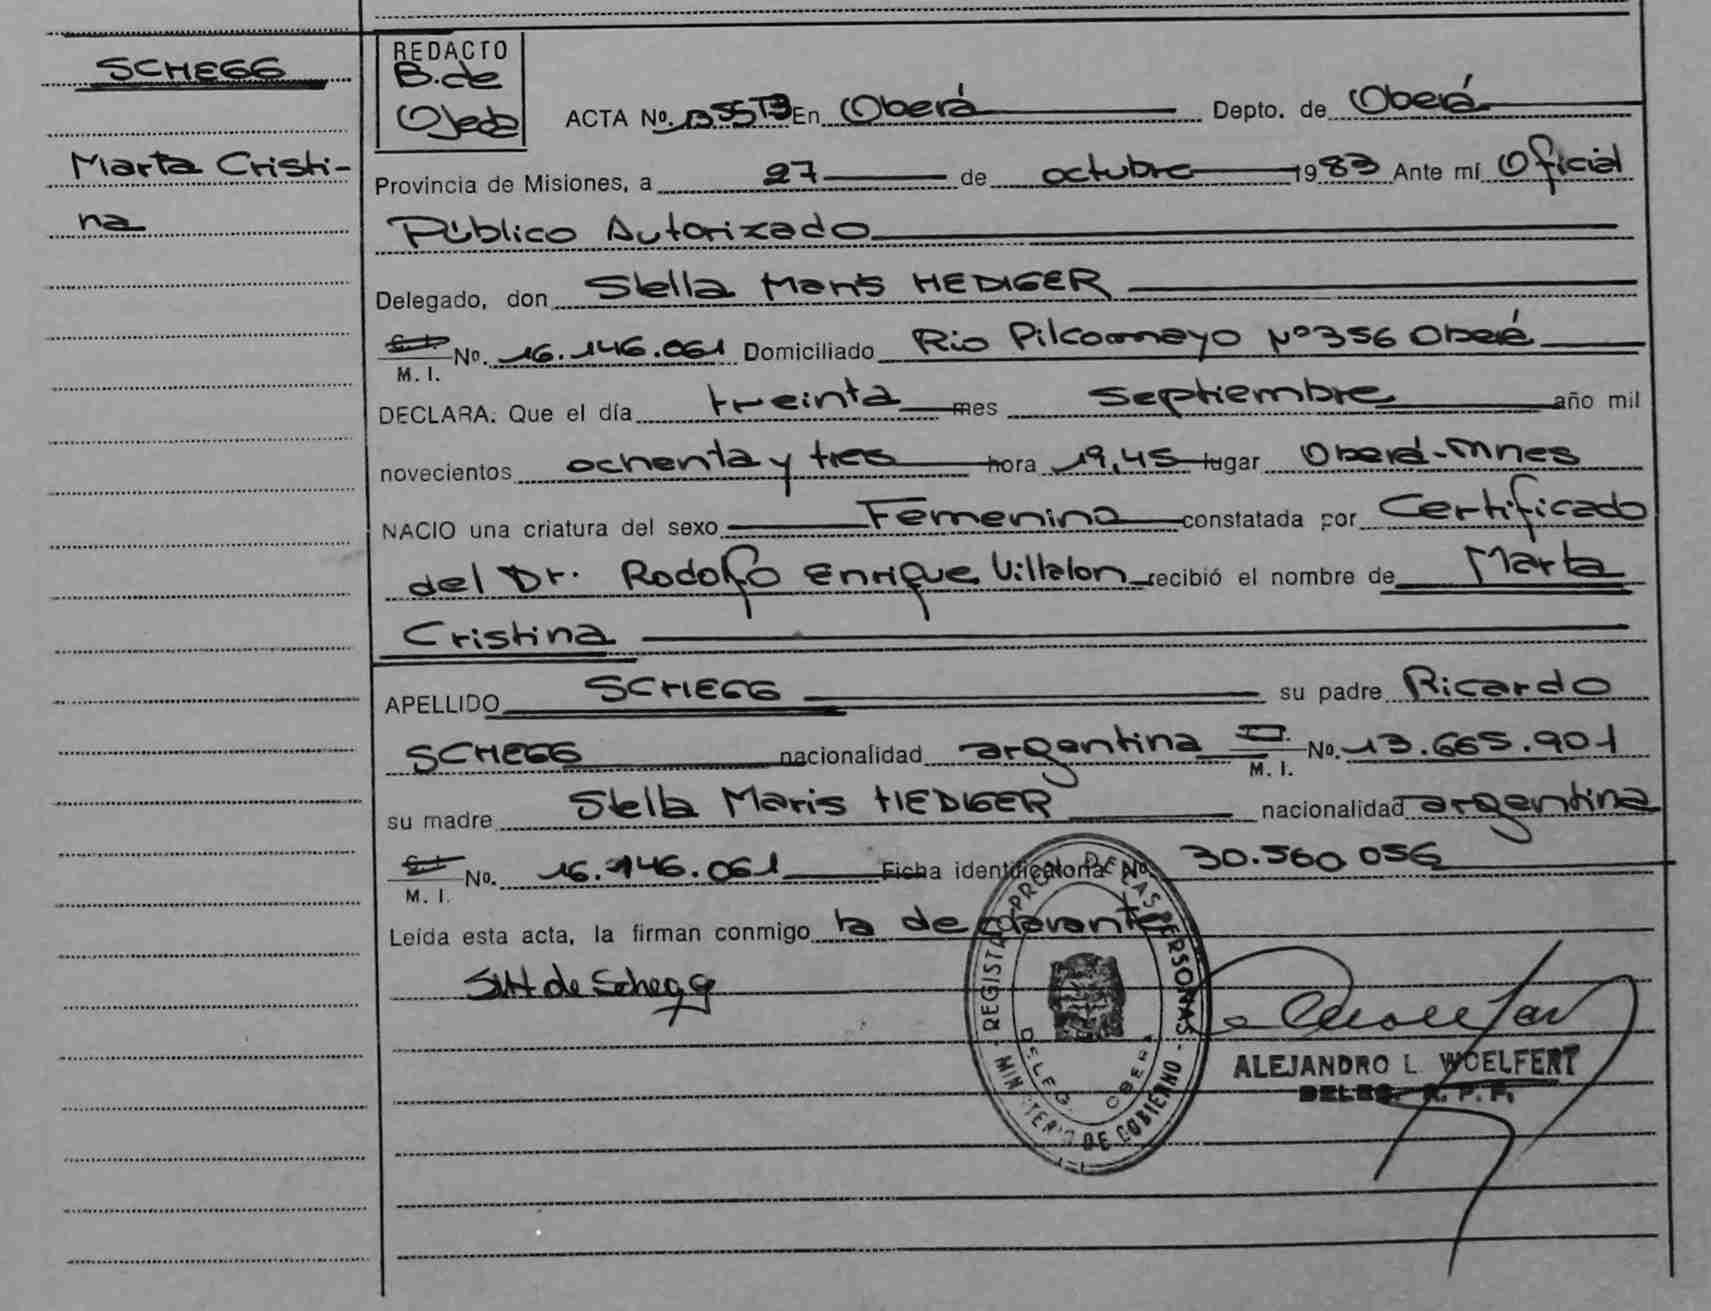 SCHEGG
Marta Cristi-
na
REDACTO
B. de
Ojeda
ACTA No. En Oberá Depto. de Oberá
Provincia de Misiones, a 27 de octubre 1983 Ante mí Oficial
Público Autorizado
Delegado, don Stella Maris HEDIGER
M. I. No. 16.146.061 Domiciliado Rio Pilcomayo Nº 356 Oberá
DECLARA: Que el día treinta mes septiembre año mil
novecientos ochenta y tres hora 19,45 lugar Oberá-Mnes
NACIO una criatura del sexo Femenino constatada por Certificado
del Dr. Rodolfo Enrique Villalon recibió el nombre de Marta
Cristina
APELLIDO SCHEGG su padre Ricardo
SCHEGG nacionalidad argentina M. I. No. 13.665.901
su madre Stella Maris HEDIGER nacionalidad argentina
M. I. No. 16.146.061 Ficha identificatoria No. 30.560.056
Leída esta acta, la firman conmigo la declarante
SMH de Schegg
REGISTRO PROV. DE LAS PERSONAS
MINISTERIO DE GOBIERNO
DELEG. OBERA
ALEJANDRO L. WOELFERT
DELEG. R. P. P.